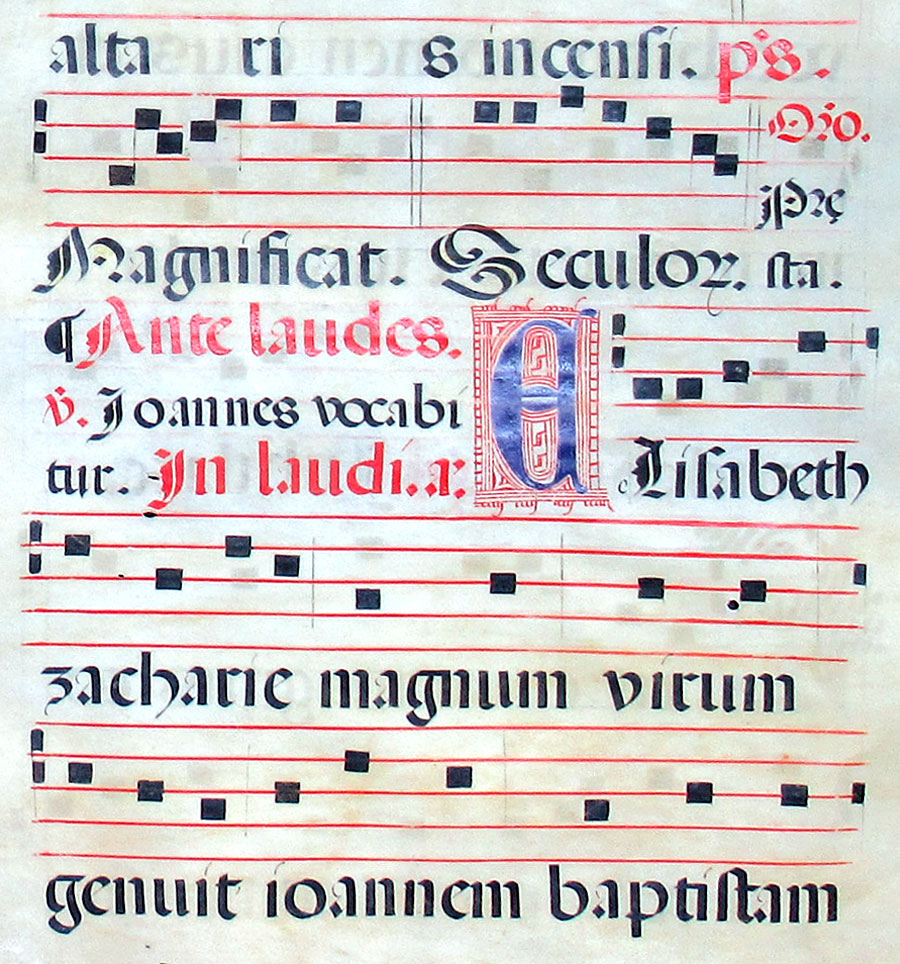 altaris incensi. ps.
Oro.
Prę
Magnificat. Seculoꝝ. sta.
¶ Ante laudes.
℣. Joannes vocabi
tur. In laudi. aʒ.
ELisabeth
zacharie magnum virum
genuit ioannem baptistam